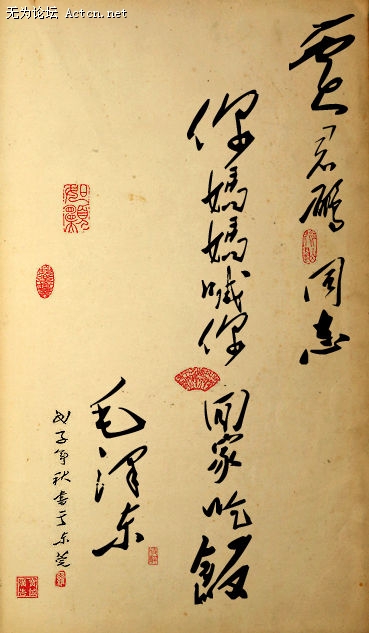 无为论坛 Actcn.net
贾君鹏同志
你媽媽喊你回家吃飯
毛泽东
戊子年秋書于东莞